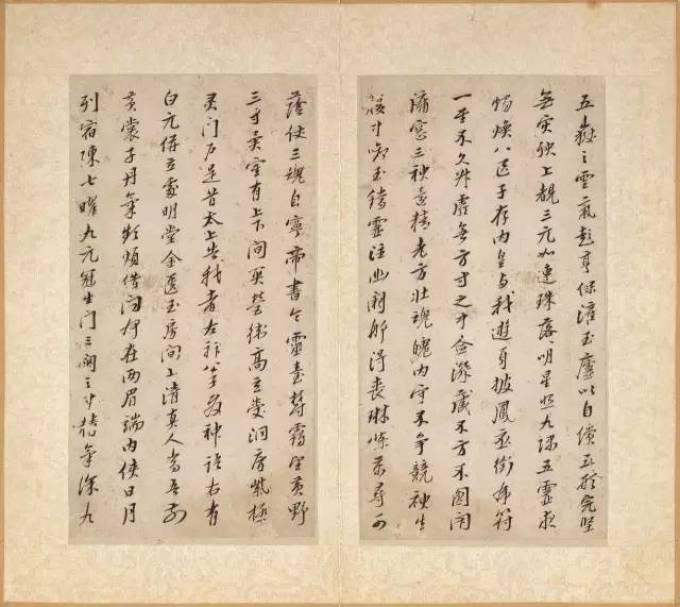 五嶽之雲氣彭亨保灌玉廬以自償五形完堅
無災殃上覩三元如連珠落落明景照九隅五靈夜
燭煥八區子存內皇與我遊身披鳳衣銜虎符
一至不久昇虛無方寸之中念深藏不方不圓閉
牖窗三神還精老方壯魂魄內守不爭競神生
腹中銜玉鐺靈注幽闕那得喪琳條萬尋可
蔭仗三魂自寧帝書命靈臺鬱靄望黃野
三寸異室有上下間關營衛高玄受洞房紫極
靈門戶是昔太上告我者左神公子發神語右有
白元併立處明堂金匱玉房間上清真人當吾前
黃裳子丹氣頻煩借問何在兩眉端內俠日月
列宿陳七曜九元冠生門三關之中精氣深九